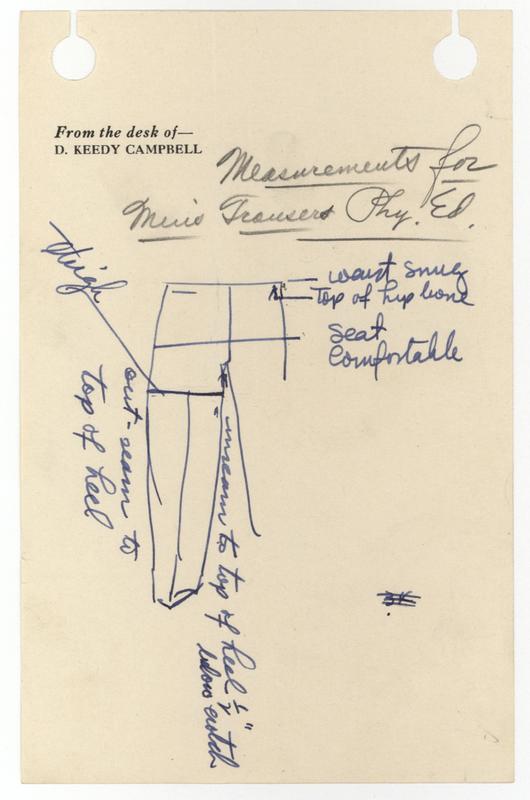 From the desk of—
D. KEEDY CAMPBELL
Measurements for
Mens Trousers Phy. Ed.
thigh
waist snug
Top of hip bone
seat
Comfortable
out-seam to
top of heel
inseam to top of heel ½"
below crotch